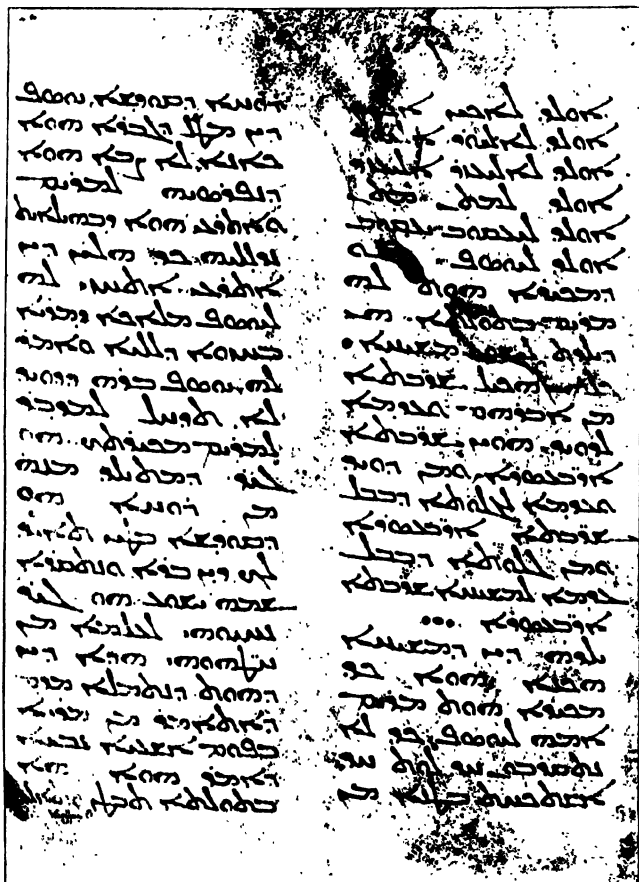 ܐܘܠܕ ܠܐܟܝܢ ܐܟܝܢ
ܐܘܠܕ ܠܐܠܝܘܕ ܐܠܝܘܕ
ܐܘܠܕ ܠܐܠܝܥܙܪ ܐܠܝܥܙܪ
ܐܘܠܕ ܠܡܬܢ ܡܬܢ
ܐܘܠܕ ܠܝܥܩܘܒ ܝܥܩܘܒ
ܐܘܠܕ ܠܝܘܣܦ ܗܘ
ܕܡܟܝܪܐ ܗܘܬ ܠܗ
ܡܪܝܡ ܒܬܘܠܬܐ ܗܝ
ܕܝܠܕܬ ܠܝܫܘܥ ܡܫܝܚܐ
ܟܠܗܝܢ ܗܟܝܠ ܫܪܒܬܐ
ܡܢ ܐܒܪܗܡ ܘܥܕܡܐ
ܠܕܘܝܕ ܗܘܝܢ ܫܪܒܬܐ
ܐܪܒܥܣܪܐ ܘܡܢ ܕܘܝܕ
ܘܥܕܡܐ ܠܓܠܘܬܐ ܕܒܒܠ
ܫܪܒܬܐ ܐܪܒܥܣܪܐ
ܘܡܢ ܓܠܘܬܐ ܕܒܒܠ
ܥܕܡܐ ܠܡܫܝܚܐ ܫܪܒܬܐ
ܐܪܒܥܣܪܐ
ܝܠܕܗ ܕܝܢ ܕܡܫܝܚܐ
ܗܟܢܐ ܗܘܐ ܟܕ
ܡܟܝܪܐ ܗܘܬ ܡܪܝܡ
ܐܡܗ ܠܝܘܣܦ ܟܕ ܠܐ
ܐܬܩܪܒܘ ܚܕ ܠܘܬ ܚܕ
ܐܫܬܟܚܬ ܒܛܢܐ ܡܢ
ܪܘܚܐ ܕܩܘܕܫܐ ܝܘܣܦ
ܕܝܢ ܡܛܠ ܕܓܒܪܐ ܗܘܐ
ܟܐܢܐ ܠܐ ܨܒܐ ܗܘܐ
ܕܢܦܪܣܝܗ ܠܡܪܝܡ
ܘܐܬܪܥܝ ܗܘܐ
ܟܕ ܗܠܝܢ ܕܝܢ
ܐܬܪܥܝ ܐܬܚܙܝ ܠܗ
ܠܝܘܣܦ ܡܠܐܟܐ ܕܡܪܝܐ
ܒܚܙܘܐ ܕܠܠܝܐ ܘܐܡܪ
ܠܗ ܝܘܣܦ ܒܪܗ ܕܕܘܝܕ
ܠܐ ܬܕܚܠ ܠܡܕܒܪ
ܠܡܪܝܡ ܡܟܝܪܬܟ ܗܘ
ܓܝܪ ܕܡܬܝܠܕ ܡܢܗ
ܡܢ ܪܘܚܐ ܗܘ
ܕܩܘܕܫܐ ܒܛܝܢ ܬܐܠܕ
ܠܟ ܕܝܢ ܒܪܐ ܘܬܩܪܐ
ܫܡܗ ܝܫܘܥ ܗܘ ܓܝܪ
ܢܚܝܘܗܝ ܠܥܠܡܐ ܡܢ
ܚܛܗܘܗܝ ܗܕܐ ܕܝܢ
ܕܗܘܬ ܕܢܬܡܠܐ ܡܕܡ
ܕܐܬܐܡܪ ܡܢ ܡܪܝܐ
ܒܦܘܡ ܐܫܥܝܐ ܢܒܝܐ
ܕܐܡܪ ܗܘܐ ܗܐ
ܒܬܘܠܬܐ ܬܒܛܢ